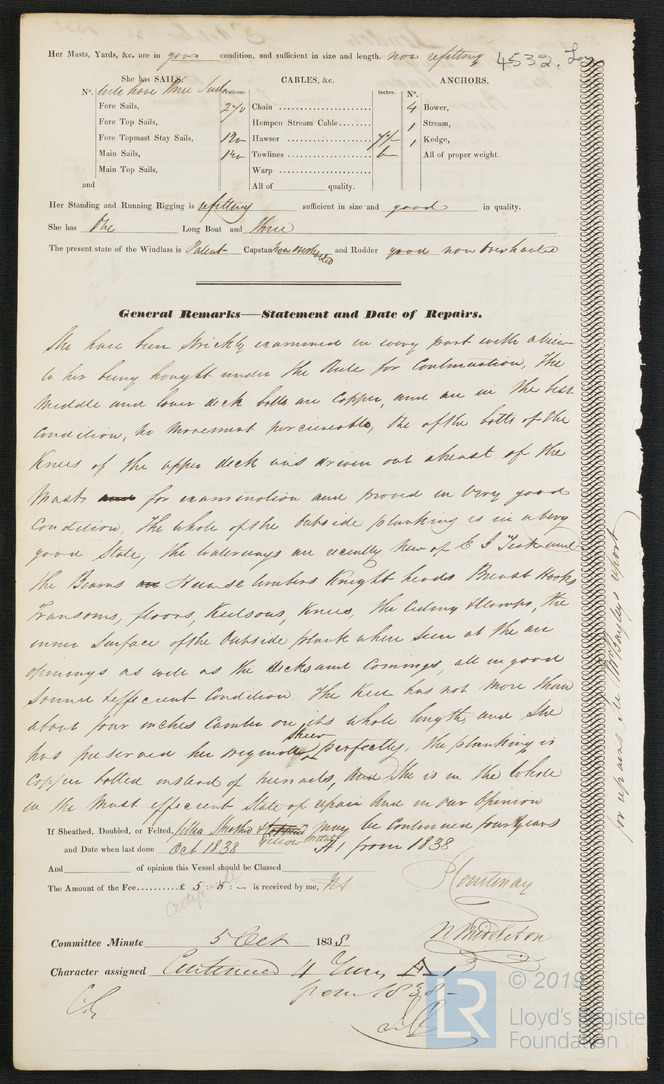 Her Masts, Yards, &c. are in good condition, and sufficient in size and length. now refitting 4532. Lon
She has SAILS. CABLES, &c. ANCHORS.
N°. Fathoms. Inches. N°.
Fore Sails, 270 Chain 4 Bower,
Fore Top Sails, Hempen Stream Cable 1 Stream,
Fore Topmast Stay Sails, Hawser 1 Kedge,
Main Sails, Towlines 6 All of proper weight.
Main Top Sails, Warp
and All of quality.
Her Standing and Running Rigging is refitting sufficient in size and good in quality.
She has One Long Boat and three
The present state of the Windlass is Patent Capstan now overhauled and Rudder good now overhauled
General Remarks—Statement and Date of Repairs.
She have been strictly examined in every part with a view
to her being brought under the Rule for Continuation, The
middle and lower deck bolts are Copper, and are in the best
Condition, no movement perceiveable, the of the bolts of the
Knees of the upper deck was driven out abreast of the
Masts and for examination and proved in Very good
Condition, The whole of the outside planking is in a very
good State, the waterways are recently New of E I Teak and
the Beams Hawse timbers Knight heads Breast Hooks
Transoms, floors, Keelsons, Knees, the Ceiling Clamps, the
inner surface of the Outside plank where seen at the air
openings as well as the decks and Comings, all in good
Sound & efficient Condition. The Keel has not more than
about four inches Camber on its whole length, and She
has preserved her original sheer perfectly, the planking is
Copper bolted instead of treenails, and She is in the whole
in the most efficient State of repair and in our Opinion
If Sheathed, Doubled, or Felted, may be Continued four Years
and Date when last done Oct 1838 Yellow Metal A1 from 1838
And of opinion this Vessel should be Classed
The Amount of the Fee £ 5 : 5 : – is received by me,
Certificate
Courtenay
N Middleton
Committee Minute 5 Oct 1838
Character assigned Continued 4 Years A 1
from 1838 –
for repairs. See Mr Bayley's report
© 2019
LR
Lloyd's Register
Foundation